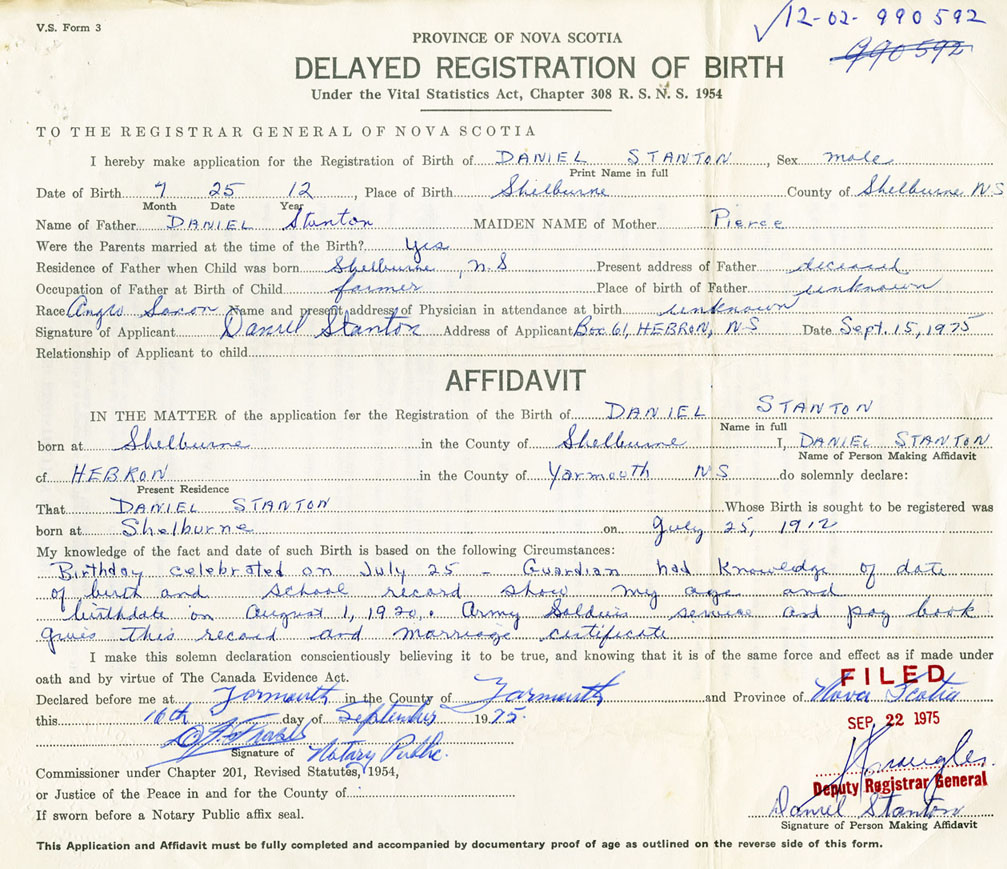 V.S. Form 3
12-02-990592
990592
PROVINCE OF NOVA SCOTIA
DELAYED REGISTRATION OF BIRTH
Under the Vital Statistics Act, Chapter 308 R. S. N. S. 1954
TO THE REGISTRAR GENERAL OF NOVA SCOTIA
I hereby make application for the Registration of Birth of DANIEL STANTON, Sex male
Print Name in full
Date of Birth 7 25 12, Place of Birth Shelburne County of Shelburne NS
Month Date Year
Name of Father DANIEL Stanton MAIDEN NAME of Mother Pierce
Were the Parents married at the time of the Birth? Yes
Residence of Father when Child was born Shelburne, N.S Present address of Father deceased.
Occupation of Father at Birth of Child farmer Place of birth of Father unknown
Race Anglo Saxon Name and present address of Physician in attendance at birth unknown
Signature of Applicant Daniel Stanton Address of Applicant Box 61, HEBRON, NS Date Sept. 15, 1975
Relationship of Applicant to child
AFFIDAVIT
IN THE MATTER of the application for the Registration of the Birth of DANIEL STANTON
Name in full
born at Shelburne in the County of Shelburne I, DANIEL STANTON
Name of Person Making Affidavit
of HEBRON in the County of Yarmouth NS do solemnly declare:
Present Residence
That DANIEL STANTON Whose Birth is sought to be registered was
born at Shelburne on July 25, 1912
My knowledge of the fact and date of such Birth is based on the following Circumstances:
Birthday celebrated on July 25 - Guardian had knowledge of date
of birth and school record show my age and
birthdate on August 1, 1920. Army Soldiers service and pay book
gives this record and marriage certificate
I make this solemn declaration conscientiously believing it to be true, and knowing that it is of the same force and effect as if made under
oath and by virtue of The Canada Evidence Act.
FILED
Declared before me at Yarmouth in the County of Yarmouth and Province of Nova Scotia
this 16th day of September 1975.
SEP 22 1975
Signature of Notary Public.
Commissioner under Chapter 201, Revised Statutes, 1954,
Deputy Registrar General
or Justice of the Peace in and for the County of
Daniel Stanton
If sworn before a Notary Public affix seal.
Signature of Person Making Affidavit
This Application and Affidavit must be fully completed and accompanied by documentary proof of age as outlined on the reverse side of this form.